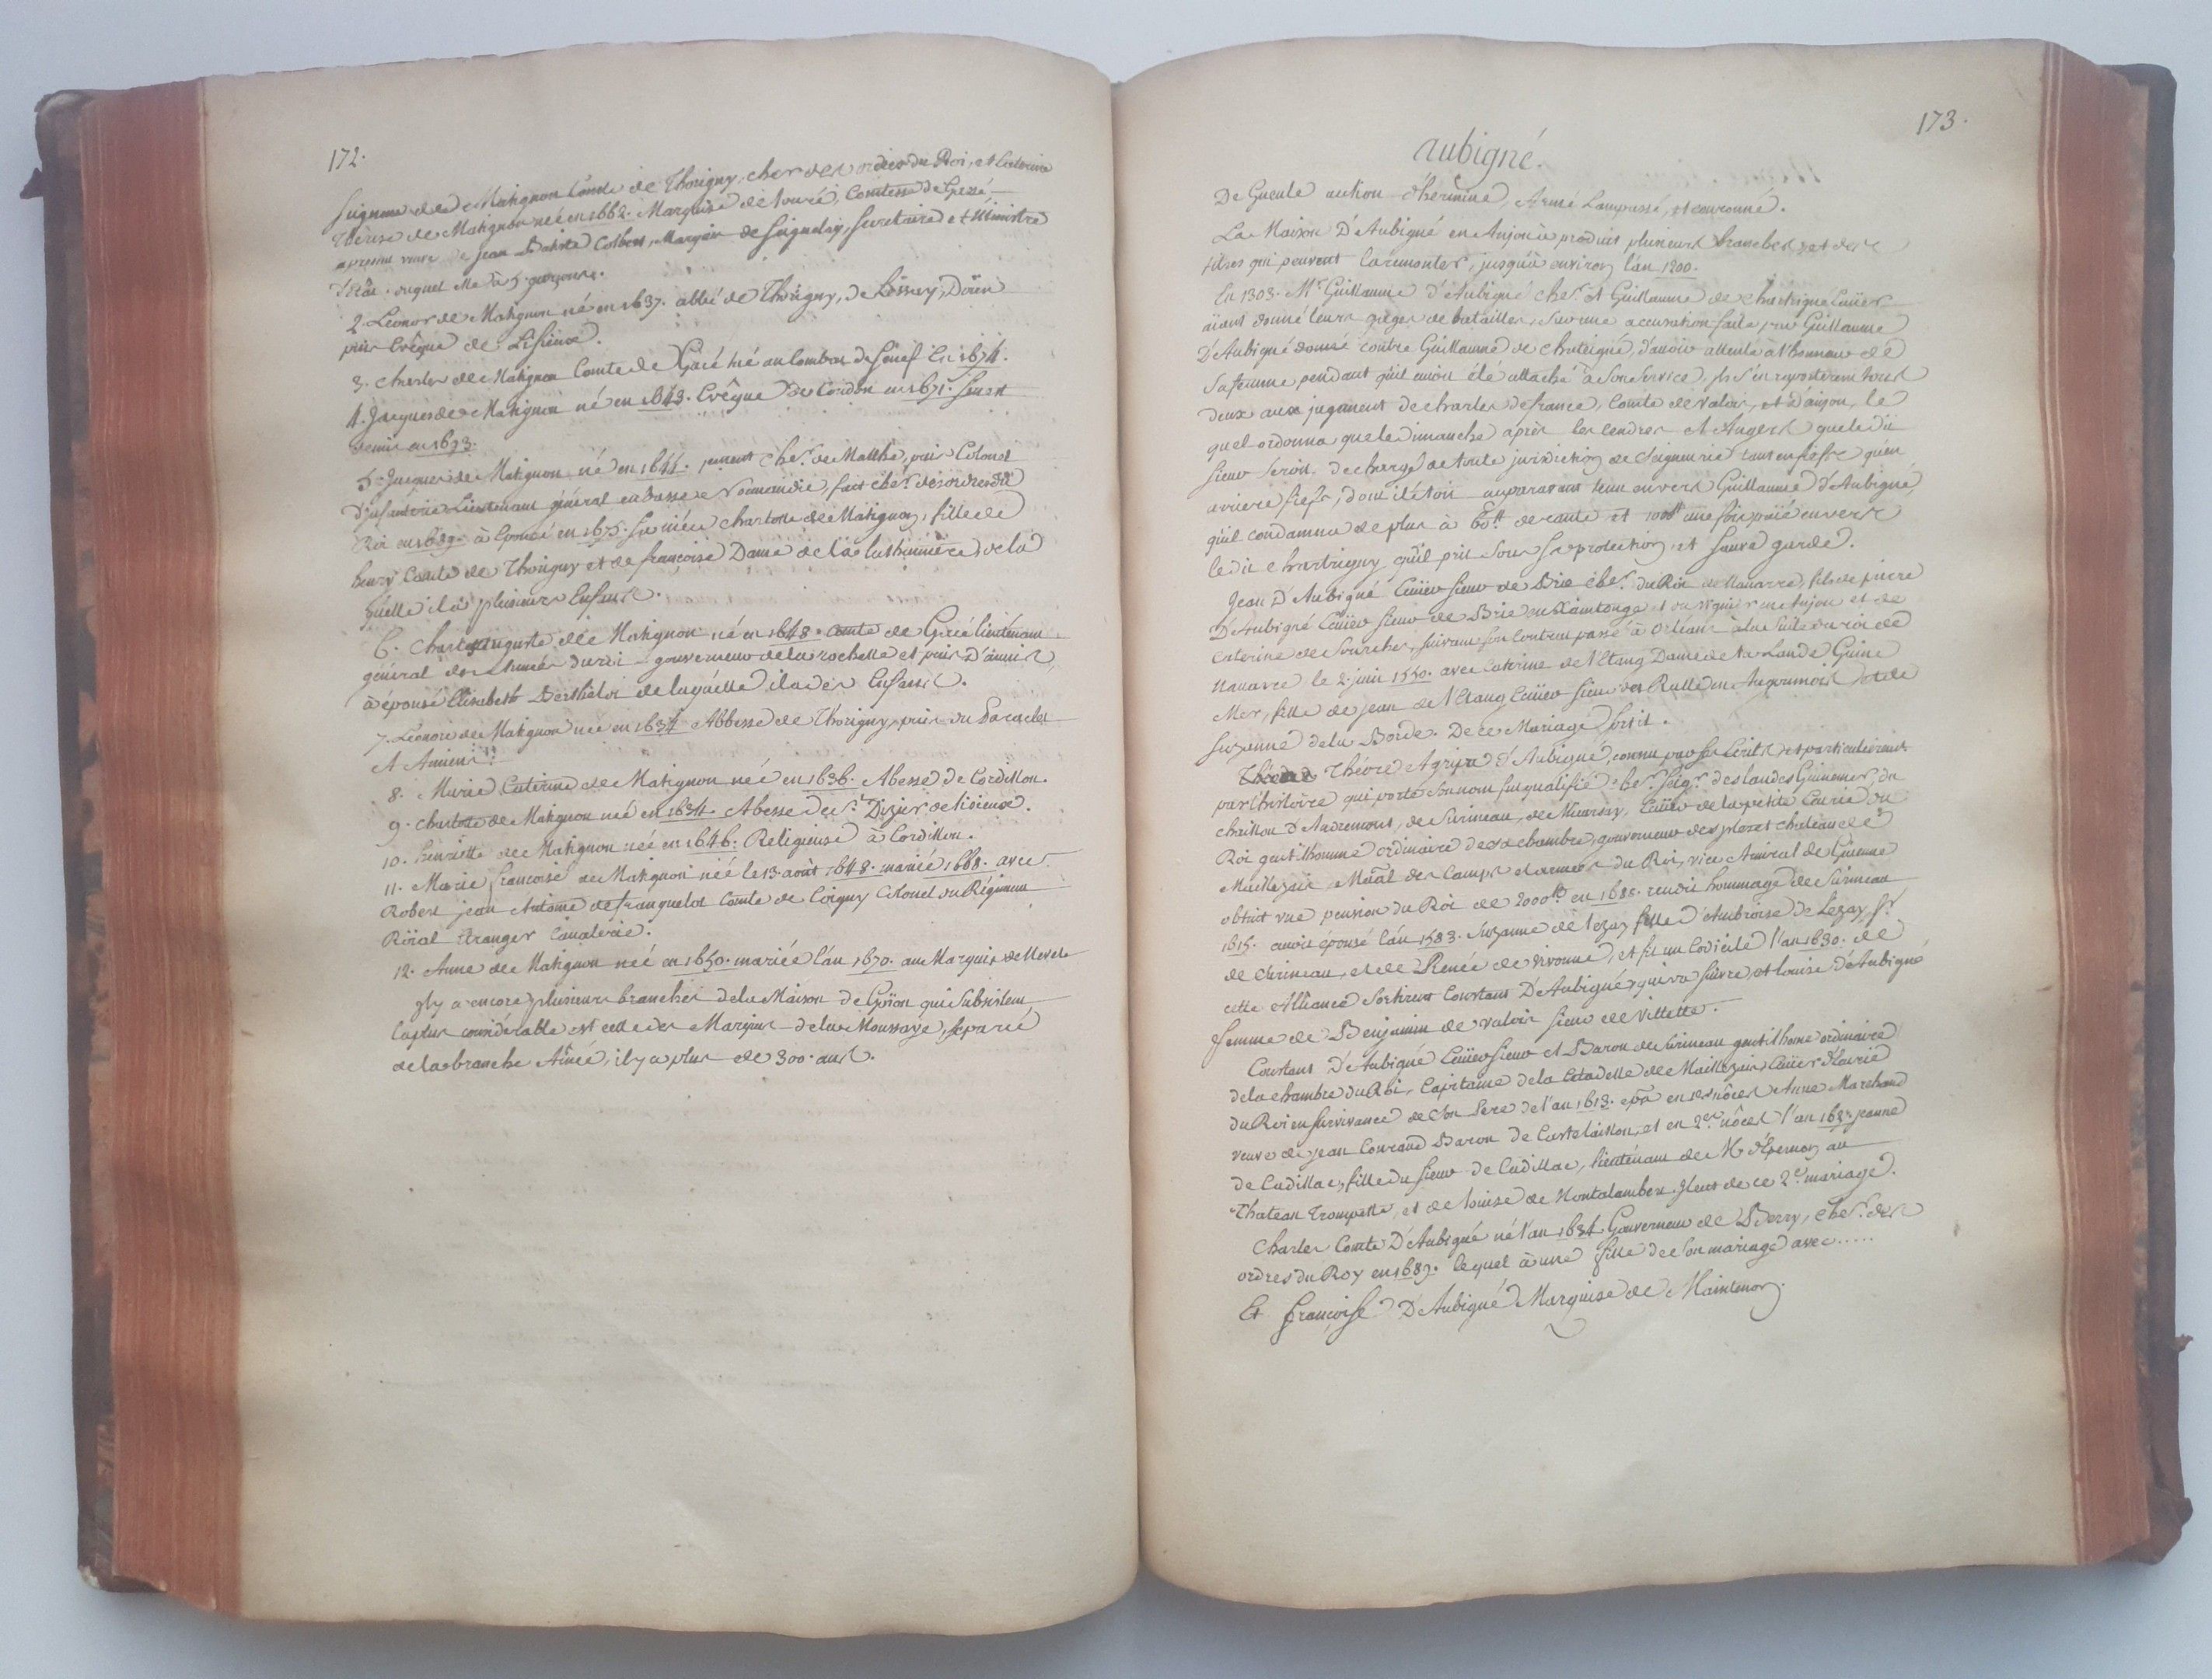 172.
Seigneur de Matignon Comte de Thorigny, cher des ordres du Roi, et Caterine
Thérese de Matignon née en 1662. Marquise de Lonré, Comtesse de Gessé
apresent veuve de jean Batiste Colbert, Marquis de Seignelay, Secretaire et Ministre
d'Etat. duquel elle a 5 garçons.
2. Leonor de Matignon né en 1637. abbé de Thorigny, de Lessay, Doïen
puis Evêque de Lisieux.
3. charles de Matignon Comte de Gacé tué au Combat de Senef En 1674.
4. Jacques de Matignon né en 1643. Evêque de Condon en 1671. s'en est
demis en 1693.
5. Jacques de Matignon né en 1644. cher. de Malthe, puis Colonel
D'jnfanterie Lieutenant général en basse Normandie, fait cher. des ordres du
Roi en 1689. à Epousé en 1675. sa niéce charlotte de Matignon, fille de
henry Comte de Thorigny et de françoise Dame de la Luthumiére, de la
quelle il à plusieurs Enfans.
6. Charles Auguste de Matignon né en 1648. comte de Gacé lieutenant
général des Armées du roi gouverneur de la rochelle et païs D'aunis,
à épousé Elisabeth Berthelot de laquelle il a des Enfans.
7. Léonore de Matignon née en 1634 Abbesse de Thorigny puis du Paraclet
A Amiens.
8. Marie Caterine de Matignon née en 1636. Abesse de Cordillon.
9. charlotte de Matignon né en 1634. Abesse de St. Dizier de lisieux.
10. henriette de Matignon née en 1646. Religieuse à Cordillon.
11. Marie françoise de Matignon née le 13 août 1648. mariée 1668. avec
Robert jean Antoine de franquetot Comte de Coigny Colonel du Régiment
Röial Etranger Cavalerie.
12. Anne de Matignon née en 1650. mariée l'an 1670. au Marquis de Nevet
Jl y a encore plusieurs branches de la Maison de Goÿon qui subsistent
La plus considérable est celle des Marquis de la Moussaye, séparé
de la branche Aînée, il y a plus de 300. ans.
173.
Aubigné.
De Gueule au lion d'hermine, Armé Lampassé, et couronné.
La Maison D'Aubigné en Anjou à produit plusieurs branches et des
titres qui peuvent la remonter, jusqu'à environ l'an 1200.
En 1303. Mr. Guillaume d'Aubigné cher. et Guillaume de chartrigné Ecüier
aïant donné leurs gages de batailles, sur une accusation faite par Guillaume
D'Aubigné contre Guillaume de chartrigné, d'avoir attenté à l'honneur de
sa femme pendant qu'il avoit été attaché à son service, jls s'en raporterent tous
deux aux jugement de charles de france, Comte de valois, et D'anjou, le
quel ordonna que le dimanche après les cendres et Angers que le dit
Sieur seroit dechargé de toute jurisdiction de seigneurie tant en fiefs qu'en
arriere fiefs, dont il étoit auparavant tenu envers Guillaume d'Aubigné,
qu'il condamna de plus à 60tt de rante et 1000tt une fois païé envers
le dit chartrigny qu'il prit sous sa protection et sauve garde.
Jean D'Aubigné Ecüier sieur de Brie cher. du Roi de Navarre, fils de pierre
D'Aubigné Ecüier sieur de Brie en Xaintonge et du vignier en Anjou et de
Caterine de Sourches, suivant son Contrat passé à Orléans à la suite du roi de
Navarre le 2. juin 1550. avec Caterine de l'Etang Dame de la Lande Guine
Mer, fille de jean de l'Etang Ecüier sieur de Rulle en Angoumois et de
Suzanne de la Borde. De ce Mariage sortit.
Théore Agripa d'Aubigné, connu par ses Ecrits et particulierement
par l'histoire qui porte son nom fut qualifié cher. seigr. des landes Guinemer, du
chaillou D'Audremont, de Surineau, de Mursay, Ecüier de la petite Ecurie du
Roi gentilhomme ordinaire de sa chambre, gouverneur des ples et chateau de
Maillezais, Maal. des Camps et armées du Roi, vice Amiral de Güienne
obtint une pension du Roi de 2000tt en rendit hommage de Surineau
1615. avoit épousé l'an 1583. Suzanne de Lezay fille d'Ambroise de Lezay sr.
de Surineau, et de Renée de vivonne, et fit un Codicile l'an 1630. de
cette Alliance sortirent Constant D'Aubigné qui va suivre, et louise D'Aubigné
femme de Benjamin de valois sieur de Villette.
Constant D'Aubigné Ecüier sieur et Baron de Surineau gentilhome ordinaire
de la chambre du Roi, Capitaine de la Citadelle de Maillezais, Ecüier d'Ecurie
du Roi en survivance de son Pere de l'an 1613. epa en 1eres nôces Anne Marchand
veuve de jean Couraud Baron de Castelaillon, et en 2es nôces l'an jeanne
de Cadillac, fille du sieur de Cadillac, lieutenant de Mr d'Epernon au
Chateau Trompette, et de louise de Montalambert. Jl eut de ce 2e. mariage.
Charles Comte D'Aubigné né l'an 1634 Gouverneur de Berry, cher. des
ordres du Roy en 1689. lequel à une fille de son mariage avec .....
Et françoise D'Aubigné Marquise de Maintenon.